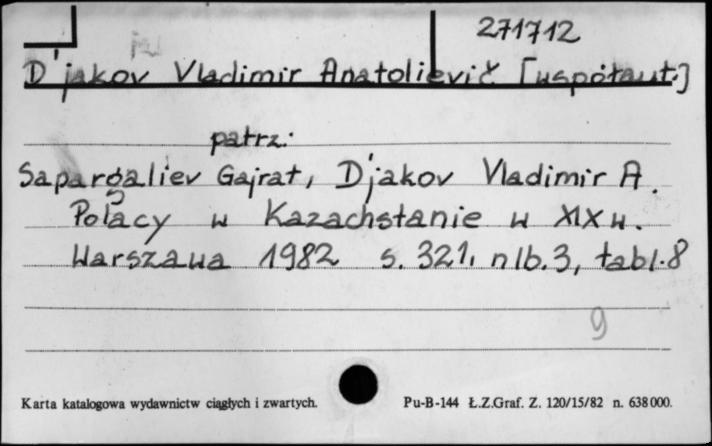 271712
D'jakov Vladimir Anatolievič [współaut.]
patrz:
Sapargaliev Gajrat, D'jakov Vladimir A.
Polacy w Kazachstanie w XIX w.
Warszawa 1982 s. 321, nlb. 3, tabl. 8
9
Karta katalogowa wydawnictw ciągłych i zwartych. Pu-B-144 Ł.Z.Graf. Z. 120/15/82 n. 638000.